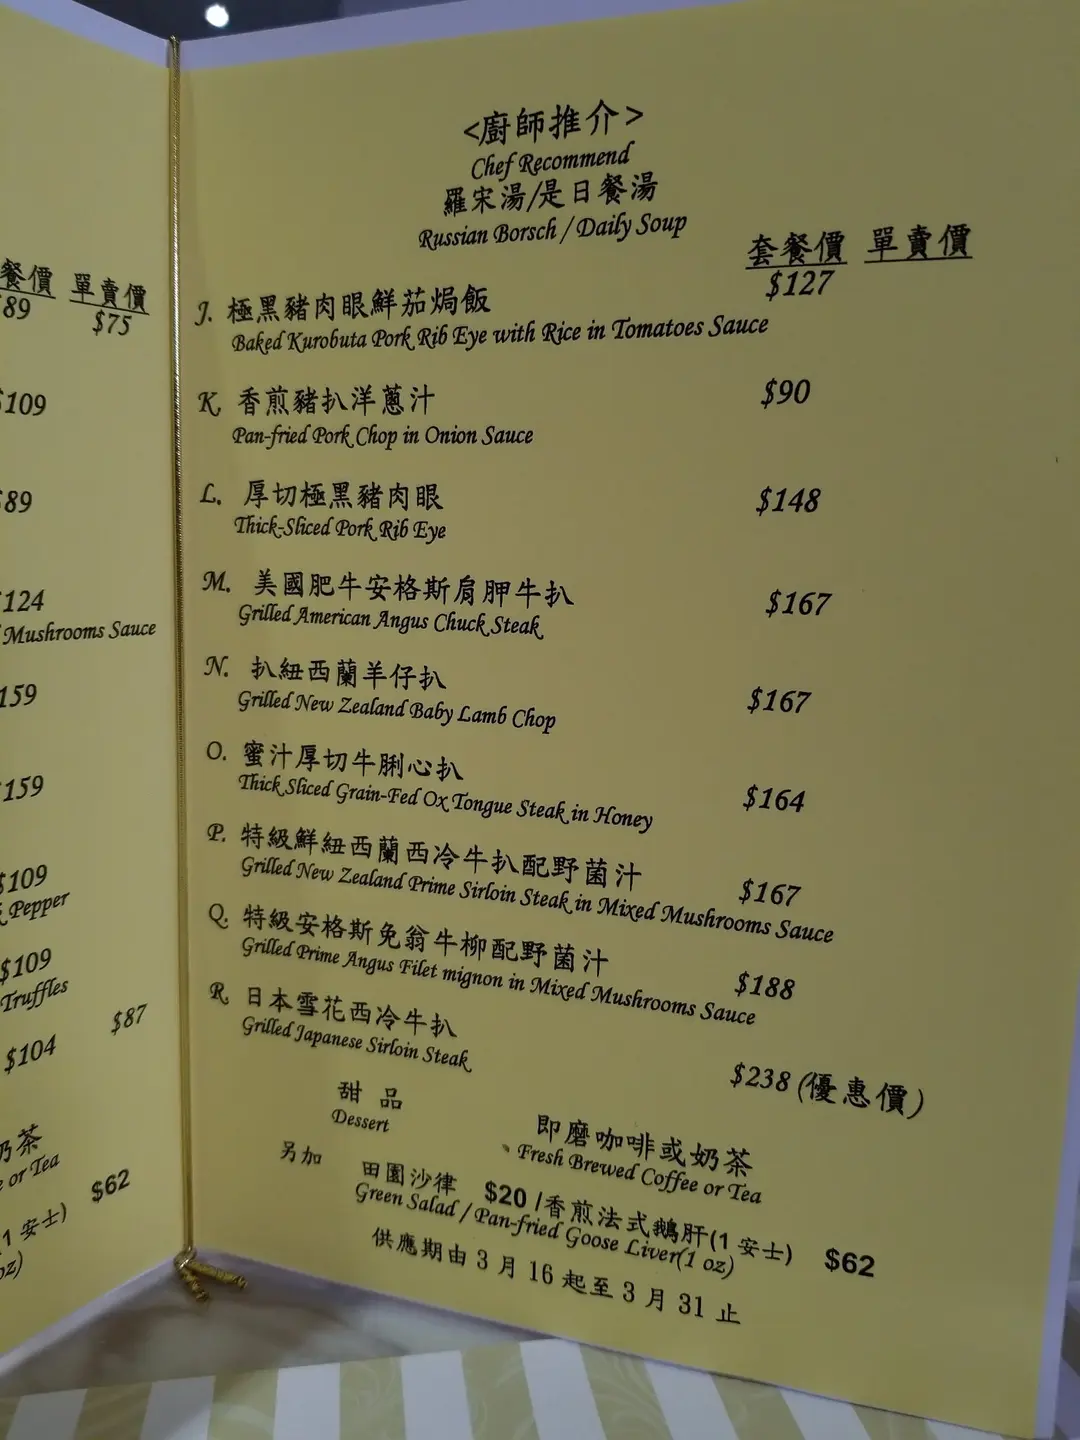 餐價 單賣價
89 $75
$109
$89
124
Mushrooms Sauce
159
159
$109
Pepper
$109
Truffles
$104 $87
奶茶
e or Tea
$62
(1 安士)
oz)
<廚師推介>
Chef Recommend
羅宋湯/是日餐湯
Russian Borsch / Daily Soup
套餐價 單賣價
J. 極黑豬肉眼鮮茄焗飯 $127
Baked Kurobuta Pork Rib Eye with Rice in Tomatoes Sauce
K. 香煎豬扒洋蔥汁 $90
Pan-fried Pork Chop in Onion Sauce
L. 厚切極黑豬肉眼 $148
Thick-Sliced Pork Rib Eye
M. 美國肥牛安格斯肩胛牛扒 $167
Grilled American Angus Chuck Steak
N. 扒紐西蘭羊仔扒 $167
Grilled New Zealand Baby Lamb Chop
O. 蜜汁厚切牛脷心扒 $164
Thick Sliced Grain-Fed Ox Tongue Steak in Honey
P. 特級鮮紐西蘭西冷牛扒配野菌汁 $167
Grilled New Zealand Prime Sirloin Steak in Mixed Mushrooms Sauce
Q. 特級安格斯免翁牛柳配野菌汁 $188
Grilled Prime Angus Filet mignon in Mixed Mushrooms Sauce
R. 日本雪花西冷牛扒 $238 (優惠價)
Grilled Japanese Sirloin Steak
甜 品 即磨咖啡或奶茶
Dessert Fresh Brewed Coffee or Tea
另加 田園沙律 $20 /香煎法式鵝肝(1 安士) $62
Green Salad / Pan-fried Goose Liver(1 oz)
供應期由 3 月 16 起至 3 月 31 止